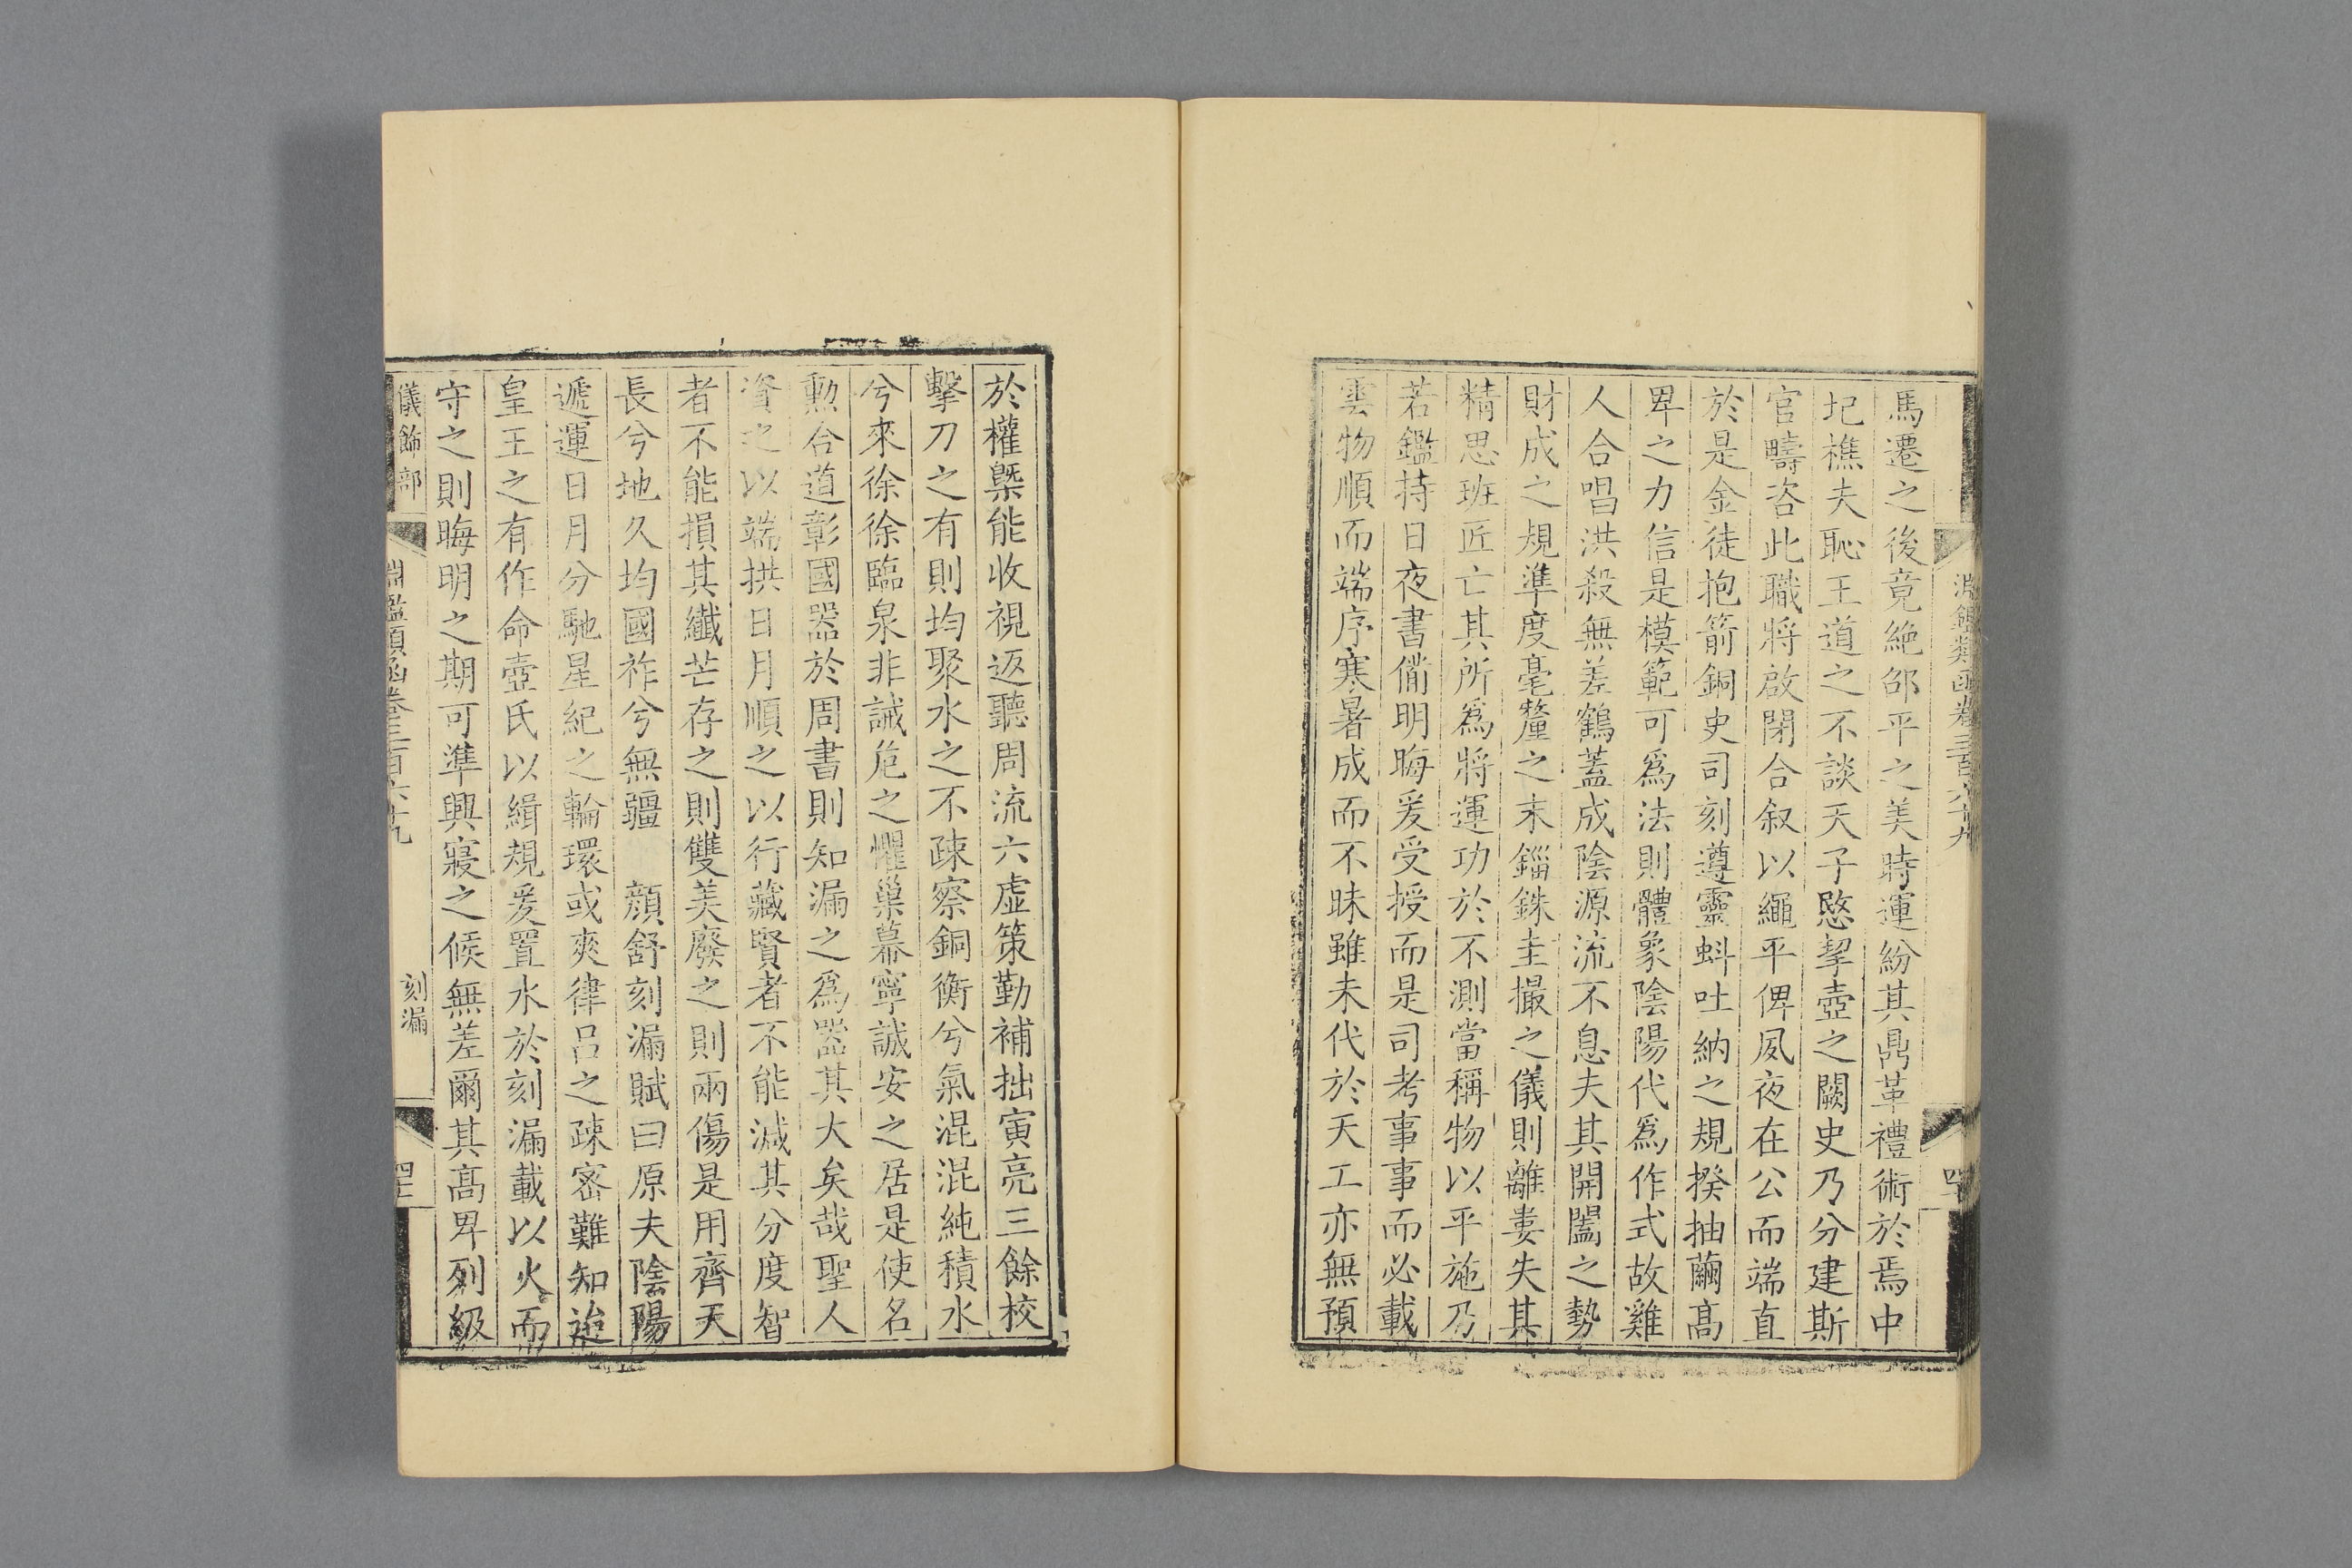 淵鑑類函卷三百六十九
馬遷之後竟絶邵平之美時運紛其鼎革禮術於焉中
圮樵夫恥王道之不談天子愍挈壺之闕史乃分建斯
官疇咨此職將啟閉合叙以繩平俾夙夜在公而端直
於是金徒抱箭銅史司刻遵靈蚪吐納之規揆抽繭髙
卑之力信是模範可爲法則體象陰陽代爲作式故雞
人合唱洪殺無差鶴蓋成陰源流不息夫其開闔之勢
財成之規準度毫釐之末錙銖圭撮之儀則離婁失其
精思班匠亡其所爲將運功於不測當稱物以平施乃
若鑑持日夜書備明晦爰受授而是司考事事而必載
雲物順而端序寒暑成而不昧雖未代於天工亦無預
於權槩能收視返聽周流六虚策勤補拙寅亮三餘校
擊刀之有則均聚水之不疎察銅衡兮氣混混純積水
兮來徐徐臨泉非誠危之懼巢幕寧誠安之居是使名
勲合道彰國器於周書則知漏之爲器其大矣哉聖人
資之以端拱日月順之以行藏賢者不能減其分度智
者不能損其纖芒存之則雙美廢之則兩傷是用齊天
長兮地久均國祚兮無疆　顔舒刻漏賦曰原夫陰陽
遞運日月分馳星紀之輪環或爽律呂之疎密難知迨
皇王之有作命壺氏以緝規爰置水於刻漏載以火而
守之則晦明之期可準興寢之候無差爾其髙卑列級
儀飾部
淵鑑類函卷三百六十九
刻漏